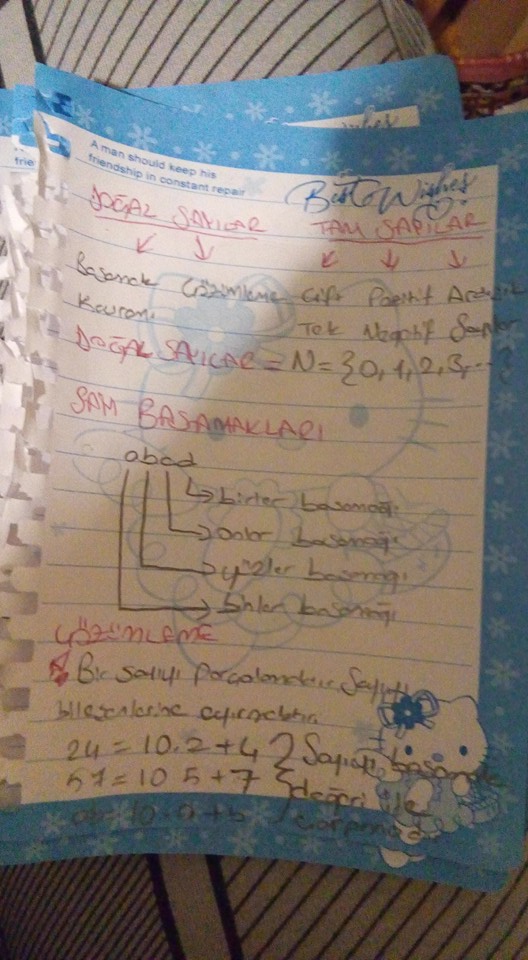 A man should keep his
friendship in constant repair
Best Wishes
DOĞAL SAYILAR TAM SAYILAR
Basamak Çözümleme Çift Pozitif Ardışık
Kavramı Tek Negatif Sayılar
DOĞAL SAYILAR = N = {0, 1, 2, 3, ... }
SAYI BASAMAKLARI
abcd
birler basamağı
onlar basamağı
yüzler basamağı
binler basamağı
ÇÖZÜMLEME
Bir sayıyı parçalamaktır. Sayıyı
bileşenlerine ayırmaktır.
24 = 10.2 + 4 } Sayıyı, basamak
57 = 10 5 + 7 değeri ile
ab = 10.a + b çarpmak